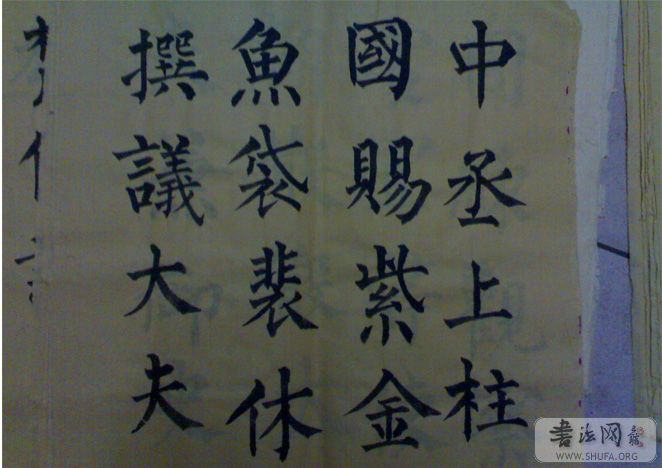 中丞上柱
國賜紫金
魚袋裴休
撰議大夫
書法网
WWW.SHUFA.ORG